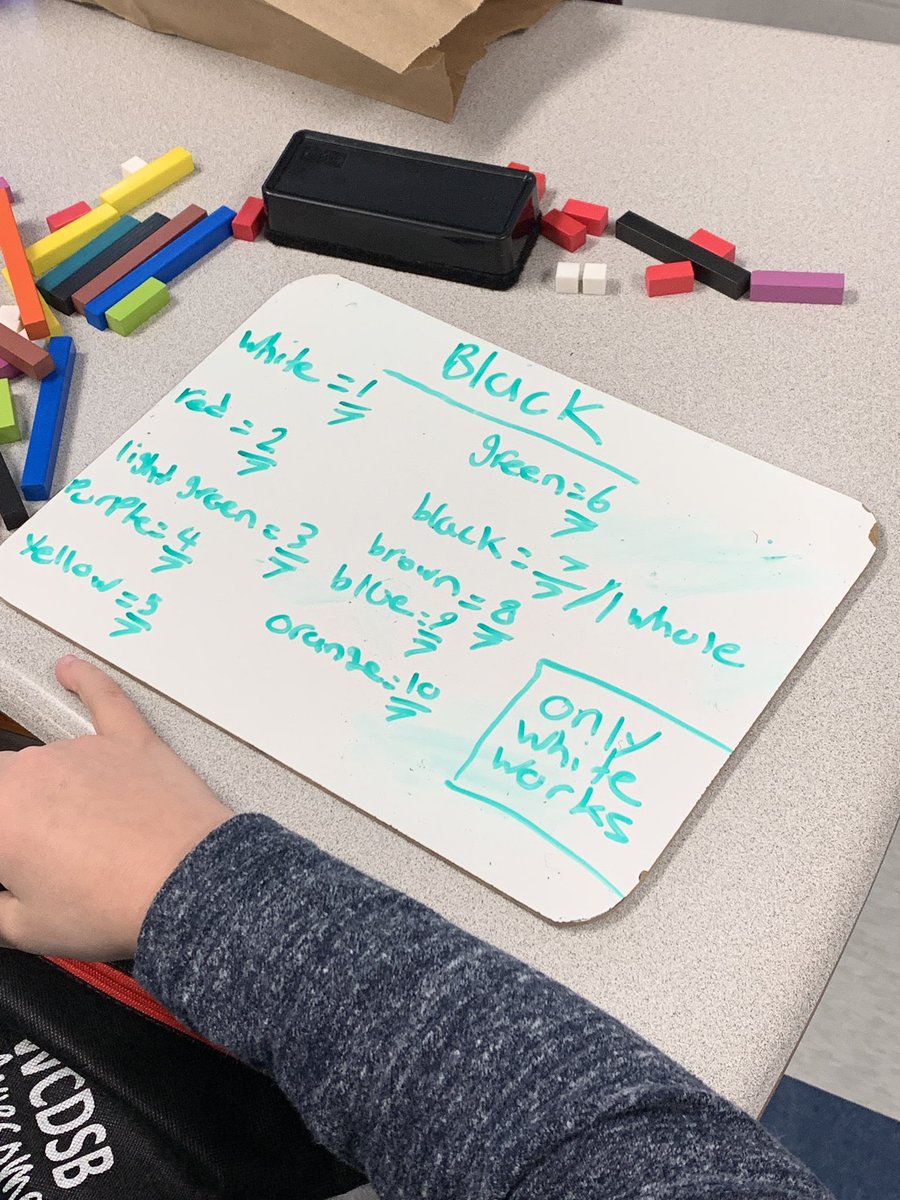 Black
white = 1/7
red = 2/7
light green = 3/7
Purple = 4/7
Yellow = 5/7
green = 6/7
black = 7/7 / 1 whole
brown = 8/7
blue = 9/7
orange = 10/7
only
white
works
WCDSB
Awesome